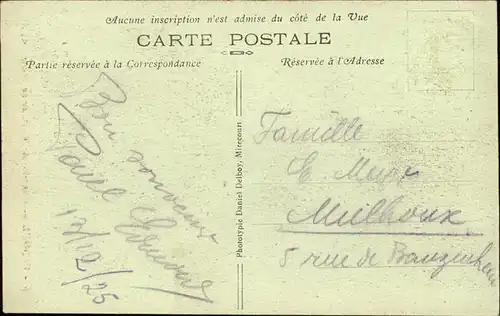 Aucune inscription n'est admise du côté de la Vue
CARTE POSTALE
Partie réservée à la Correspondance
Réservée à l'Adresse
Bon souvenir
12/12/25
Phototypie Daniel Delboy, Mirecourt
Famille
E. Meyer
Mulhouse
5 rue de Banzenheim